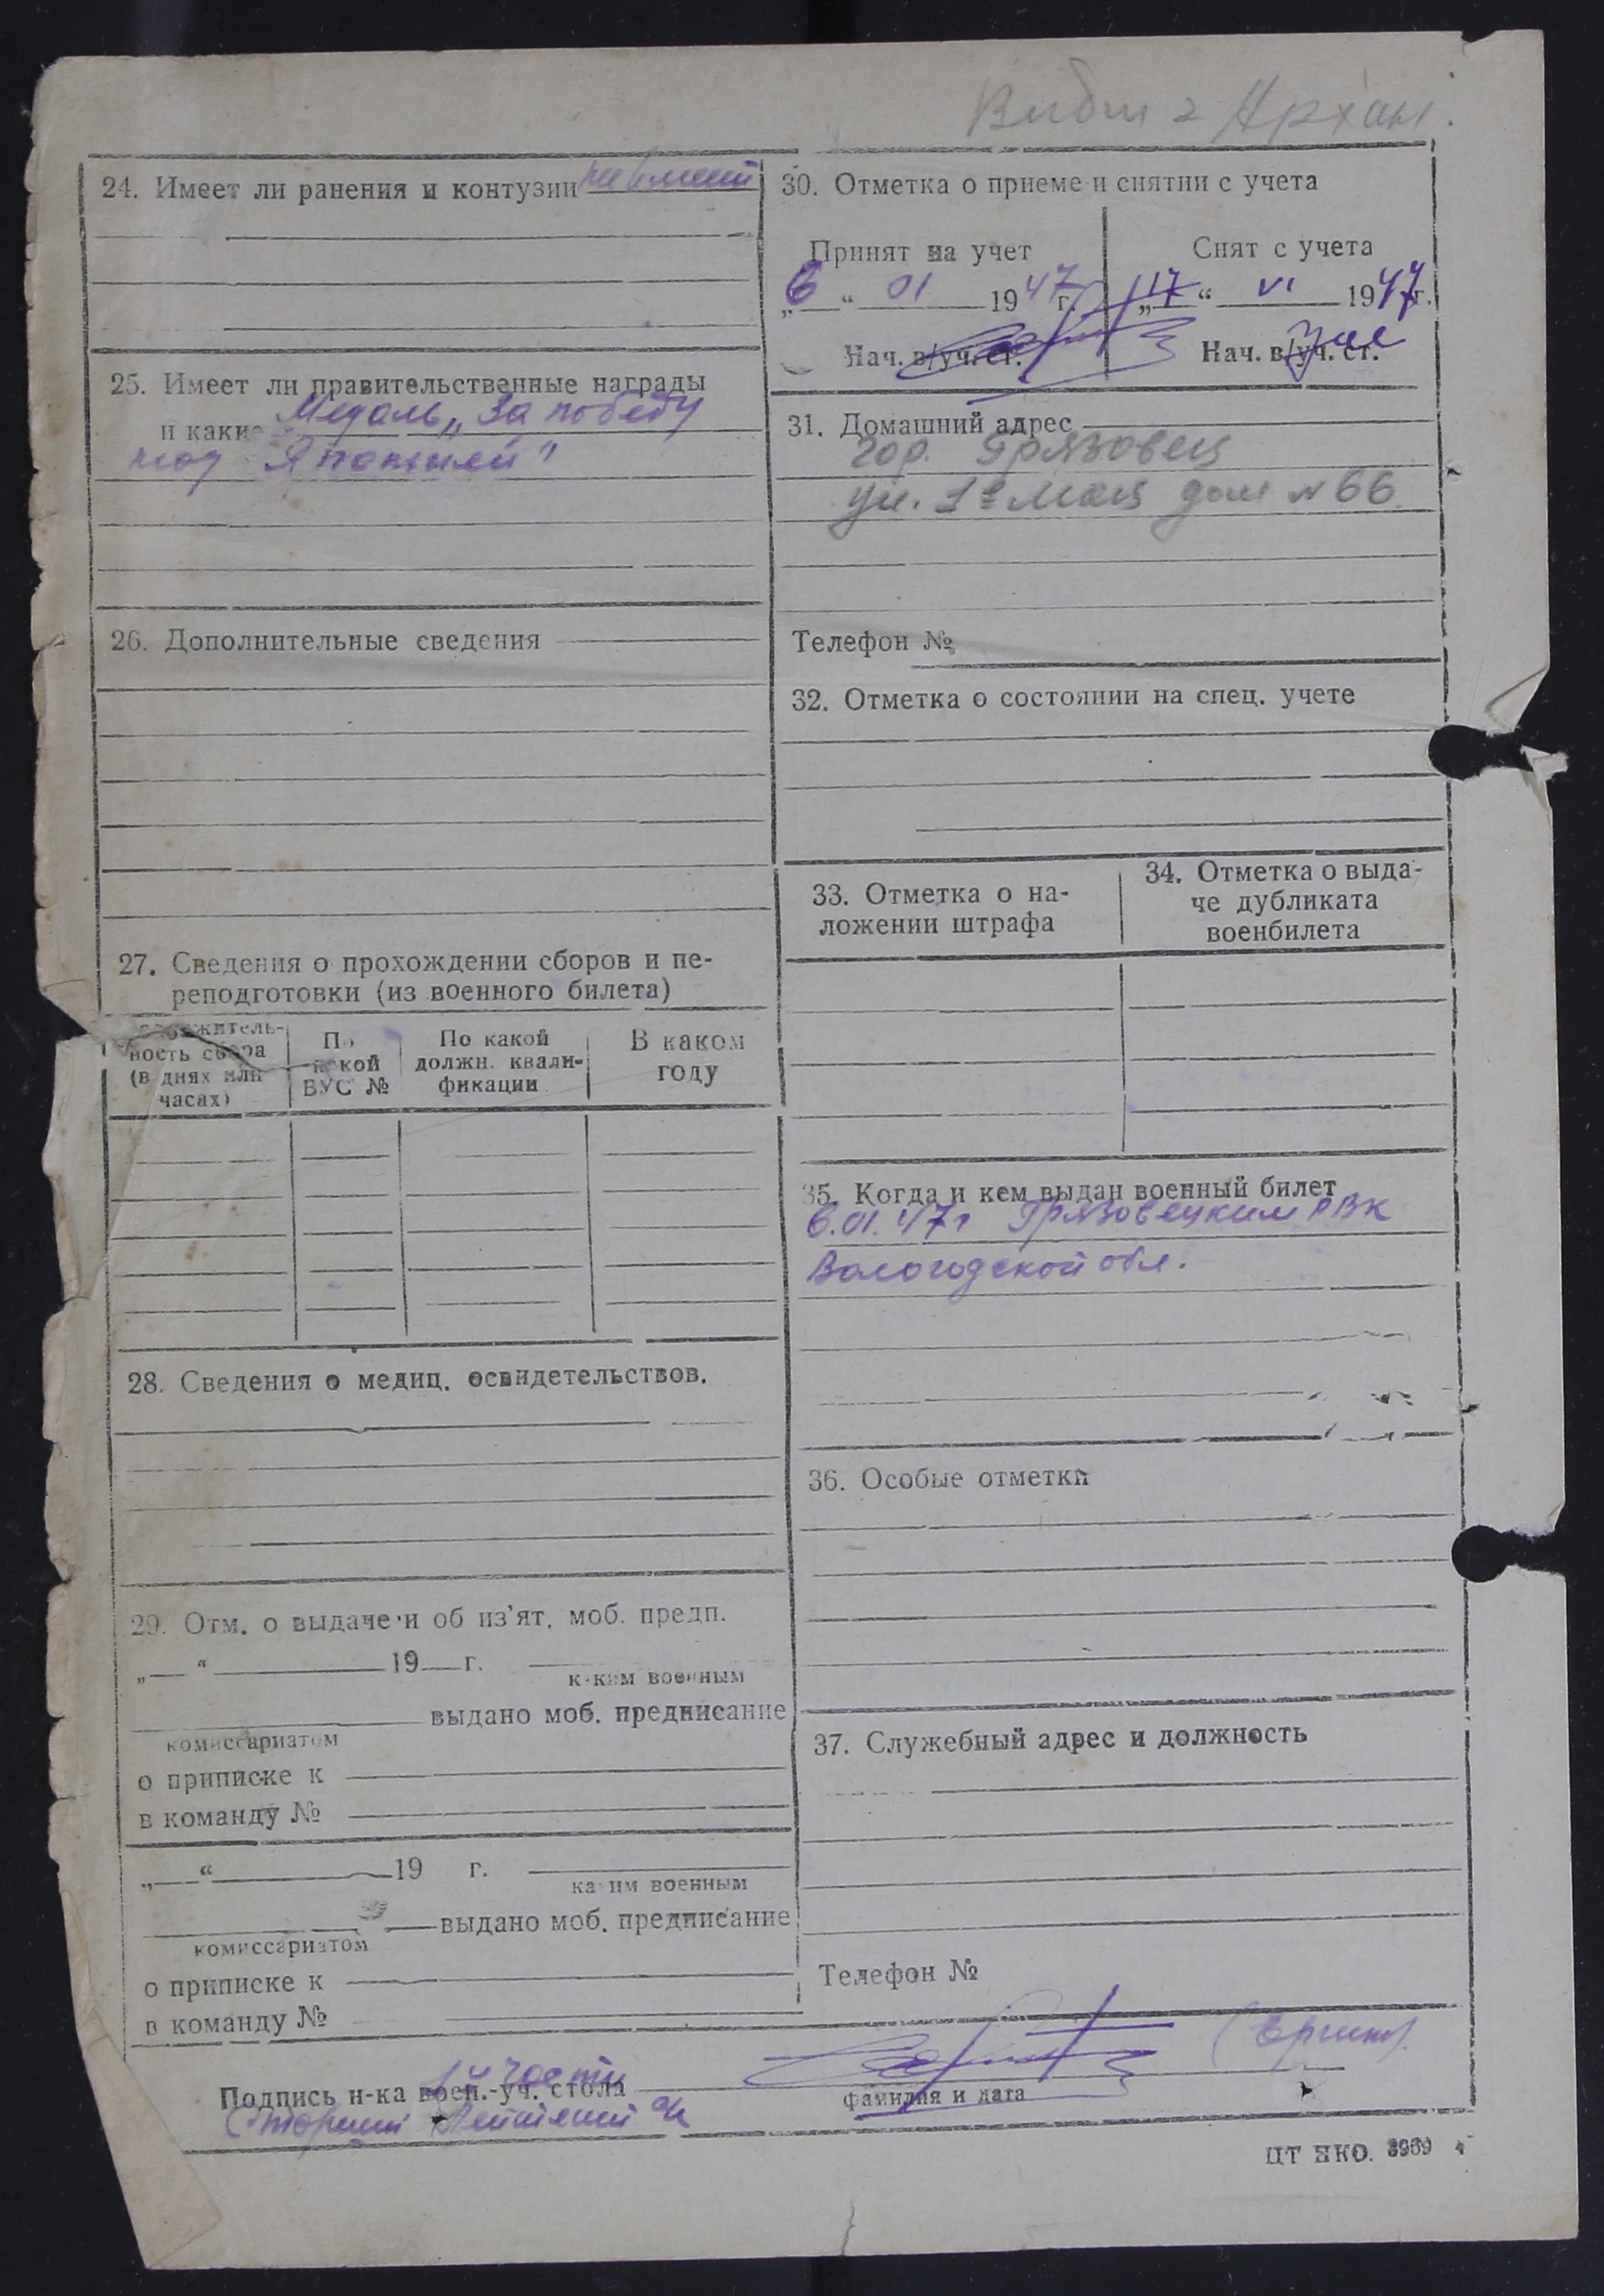 Выбыл г Архан.
24. Имеет ли ранения и контузии не имеет
25. Имеет ли правительственные награды
и какие Медаль „За победу
над Японией"
26. Дополнительные сведения
27. Сведения о прохождении сборов и пе-
реподготовки (из военного билета)
должитель-
ность сбора
(в днях или
часах)
По
какой
ВУС №
По какой
должн. квали-
фикации
В каком
году
28. Сведения о медиц. освидетельствов.
29. Отм. о выдаче и об из'ят. моб. предп.
„ “ 19 г.
каким военным
выдано моб. предписание
комиссариатом
о приписке к
в команду №
„ “ 19 г.
каким военным
выдано моб. предписание
комиссариатом
о приписке к
в команду №
30. Отметка о приеме и снятии с учета
Принят на учет
„6“ 01 1947 г.
Нач. в/уч. ст.
Снят с учета
„17“ VI 1947 г.
Нач. в/уч. ст.
31. Домашний адрес
гор. Грязовец
ул. 1е Мая дом N 66
Телефон №
32. Отметка о состоянии на спец. учете
33. Отметка о на-
ложении штрафа
34. Отметка о выда-
че дубликата
военбилета
35. Когда и кем выдан военный билет
6.01.47г Грязовецким РВК
Вологодской обл.
36. Особые отметки
37. Служебный адрес и должность
Телефон №
части
Подпись н-ка воен.-уч. стола
Старший Лейтенант
фамилия и дата
ЦТ НКО. 3969